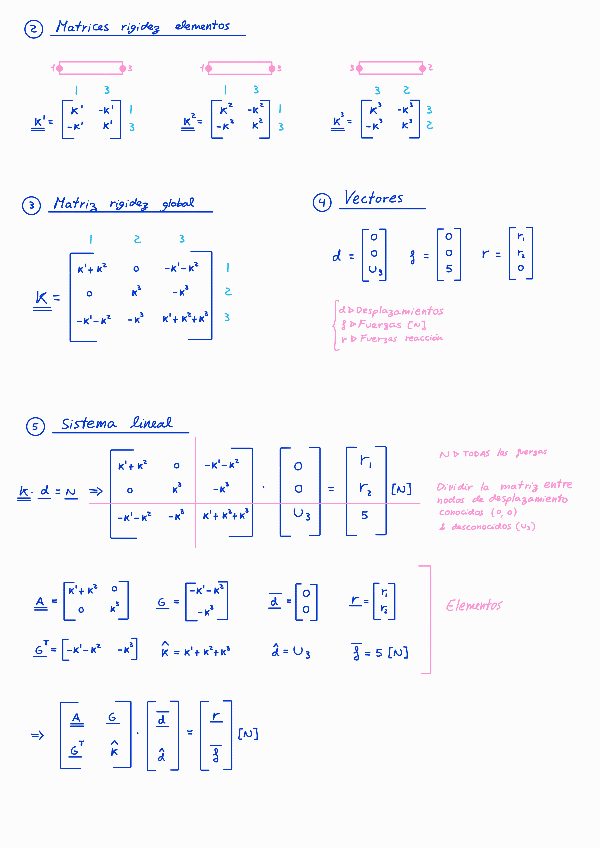 ② Matrices rigidez elementos
1 3 1 3 3 2
1 3 1 3 3 2
K¹ = [K¹ -K¹; -K¹ K¹] 1 3
K² = [K² -K²; -K² K²] 1 3
K³ = [K³ -K³; -K³ K³] 3 2
③ Matriz rigidez global
1 2 3
K¹+K² 0 -K¹-K² 1
K = 0 K³ -K³ 2
-K¹-K² -K³ K¹+K²+K³ 3
④ Vectores
d = [0; 0; U₃] f = [0; 0; 5] r = [r₁; r₂; 0]
d ▷ Desplazamientos
f ▷ Fuerzas [N]
r ▷ Fuerzas reacción
⑤ Sistema lineal
K · d = N ⇒ [K¹+K² 0 -K¹-K²; 0 K³ -K³; -K¹-K² -K³ K¹+K²+K³] · [0; 0; U₃] = [r₁; r₂; 5] [N]
N ▷ TODAS las fuerzas
Dividir la matriz entre
nodos de desplazamiento
conocidos (0, 0)
& desconocidos (U₃)
A = [K¹+K² 0; 0 K³] G = [-K¹-K²; -K³] d̅ = [0; 0] r = [r₁; r₂]
Gᵀ = [-K¹-K² -K³] K̂ = K¹+K²+K³ d̂ = U₃ f̅ = 5 [N]
Elementos
⇒ [A G; Gᵀ K̂] · [d̅; d̂] = [r; f̅] [N]